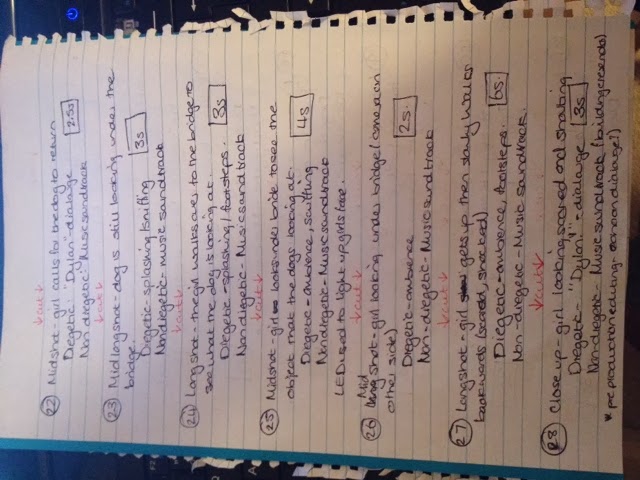 ↓cut↓
22 Midshot - girl calls for the dog to return
Diegetic: "Dylan" - dialauge
Non diegetic - Music soundtrack 2.5s
↓cut↓
23 Midlongshot - dog is still looking under the
bridge.
Diegetic - splashing/sniffing
Nondiegetic - music soundtrack 3s
↓cut↓
24 Longshot - the girl walks over to the bridge to
see what the dog is looking at.
Diegetic - splashing/footsteps. 3s
Non diegetic - Music soundtrack
↓cut↓
25 Midshot - girl looks under bridge to see the
object that the dogs looking at.
Diegetic - ambience, sniffing 4s
Nondiegetic - Music soundtrack
LED used to light up girls face.
↓cut↓
26 Mid shot - girl looking under bridge (camera on
other side)
Diegetic - ambience 2s.
Non-diegetic - Music soundtrack
↓cut↓
27 Longshot - girl gets up then slowly walks
backwords (scared, shocked)
Diegetic - ambience, footsteps. 6s
Non-diegetic - Music soundtrack.
↓cut↓
28 Close up - girl looking scared and shouting
Diegetic - "Dylan!" - dialauge 3s
Non-diegetic - Music soundtrack (building crescendo)
* pre production editing - echo on dialauge!)